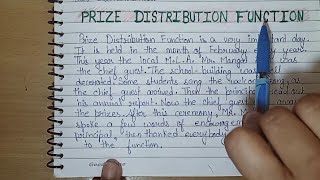 PRIZE DISTRIBUTION FUNCTION
Prize Distribution Function is a very day.
It is held in the month of February every year.
This year the local M.L.A. Mrs. Mangal was
the chief guest. The school building was well
decorated. Some students song the welcome song, as
the chief guest arrived. Then the principal read out
his annual report. Now the chief guest away
the prizes. After this ceremony, Mr.
spoke a few words of encouragement
principal, then thanked everybody
to the function.